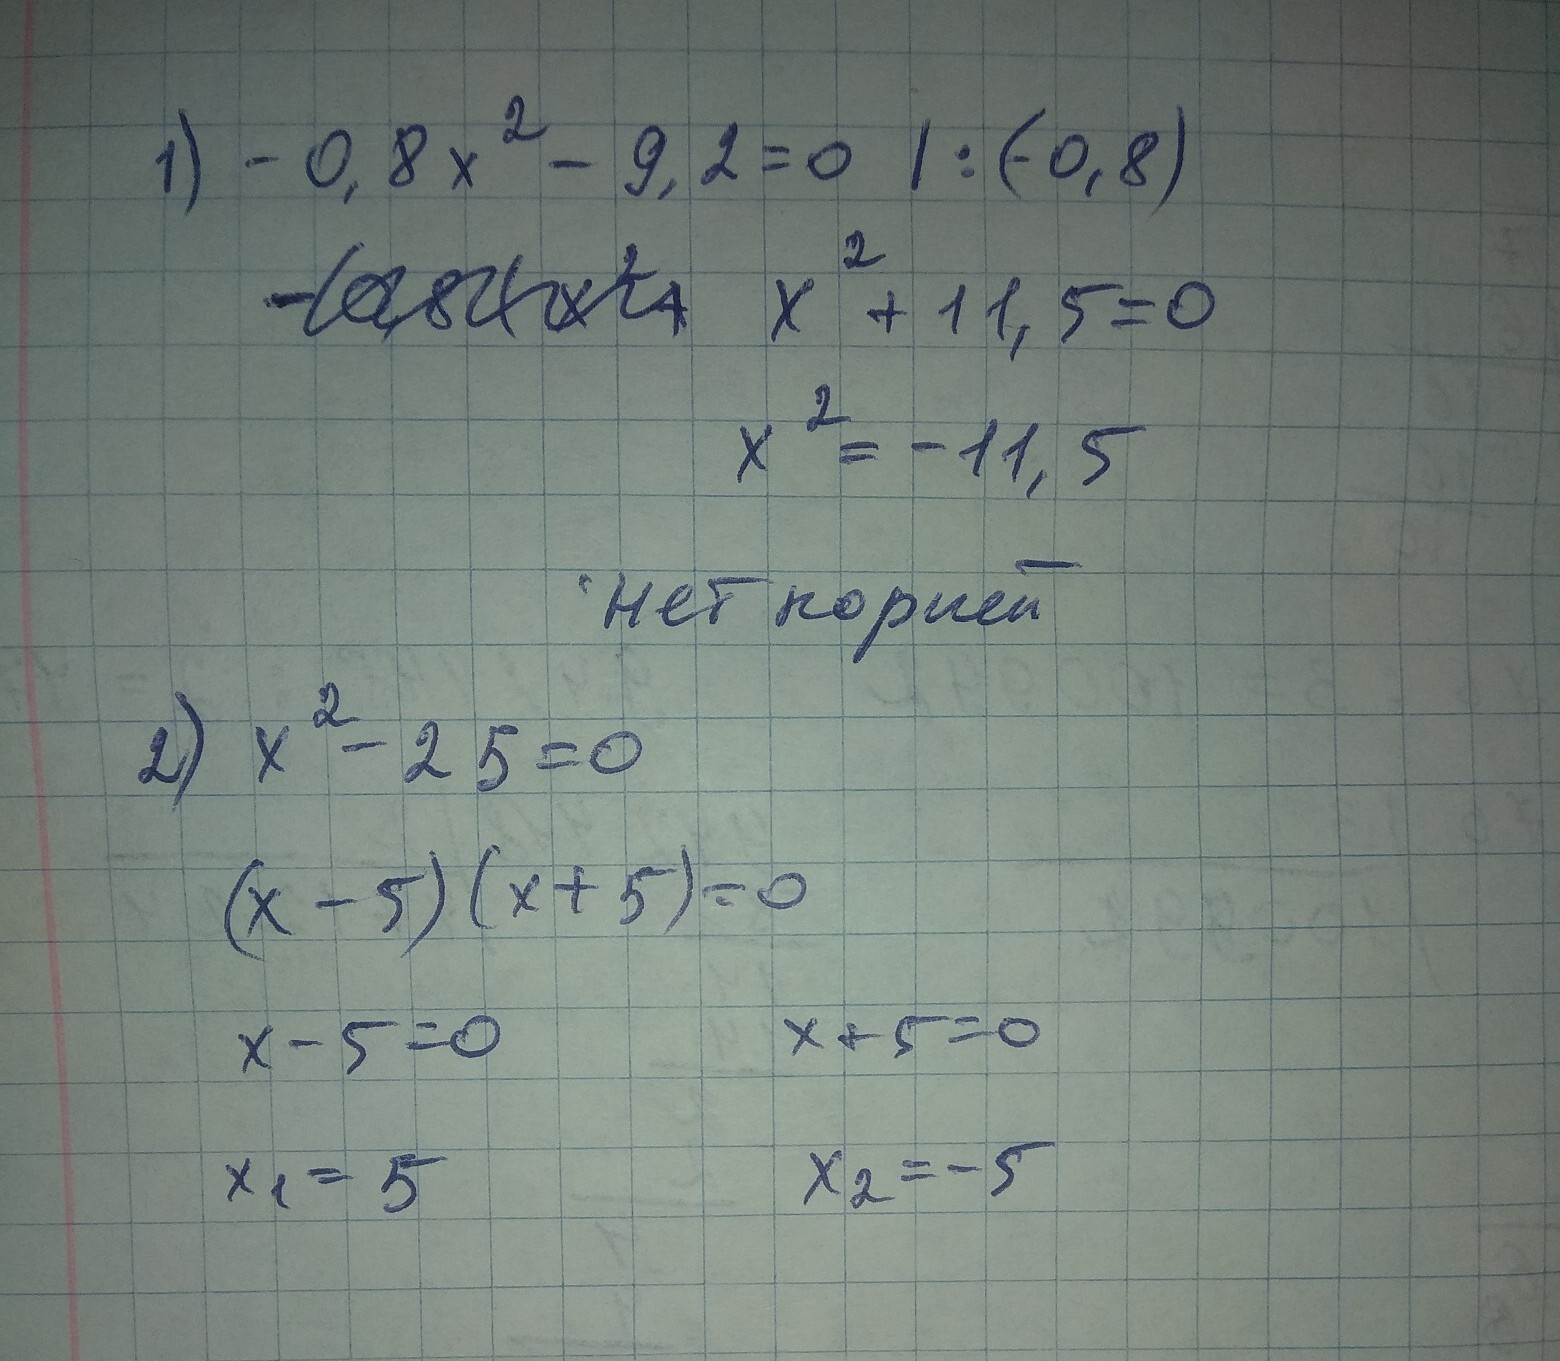 1) -0,8x² - 9,2=0 |:(-0,8)
x² + 11,5=0
x² = -11,5
нет корней
2) x² - 25=0
(x - 5)(x + 5)=0
x - 5=0 x + 5=0
x₁ = 5 x₂ = -5